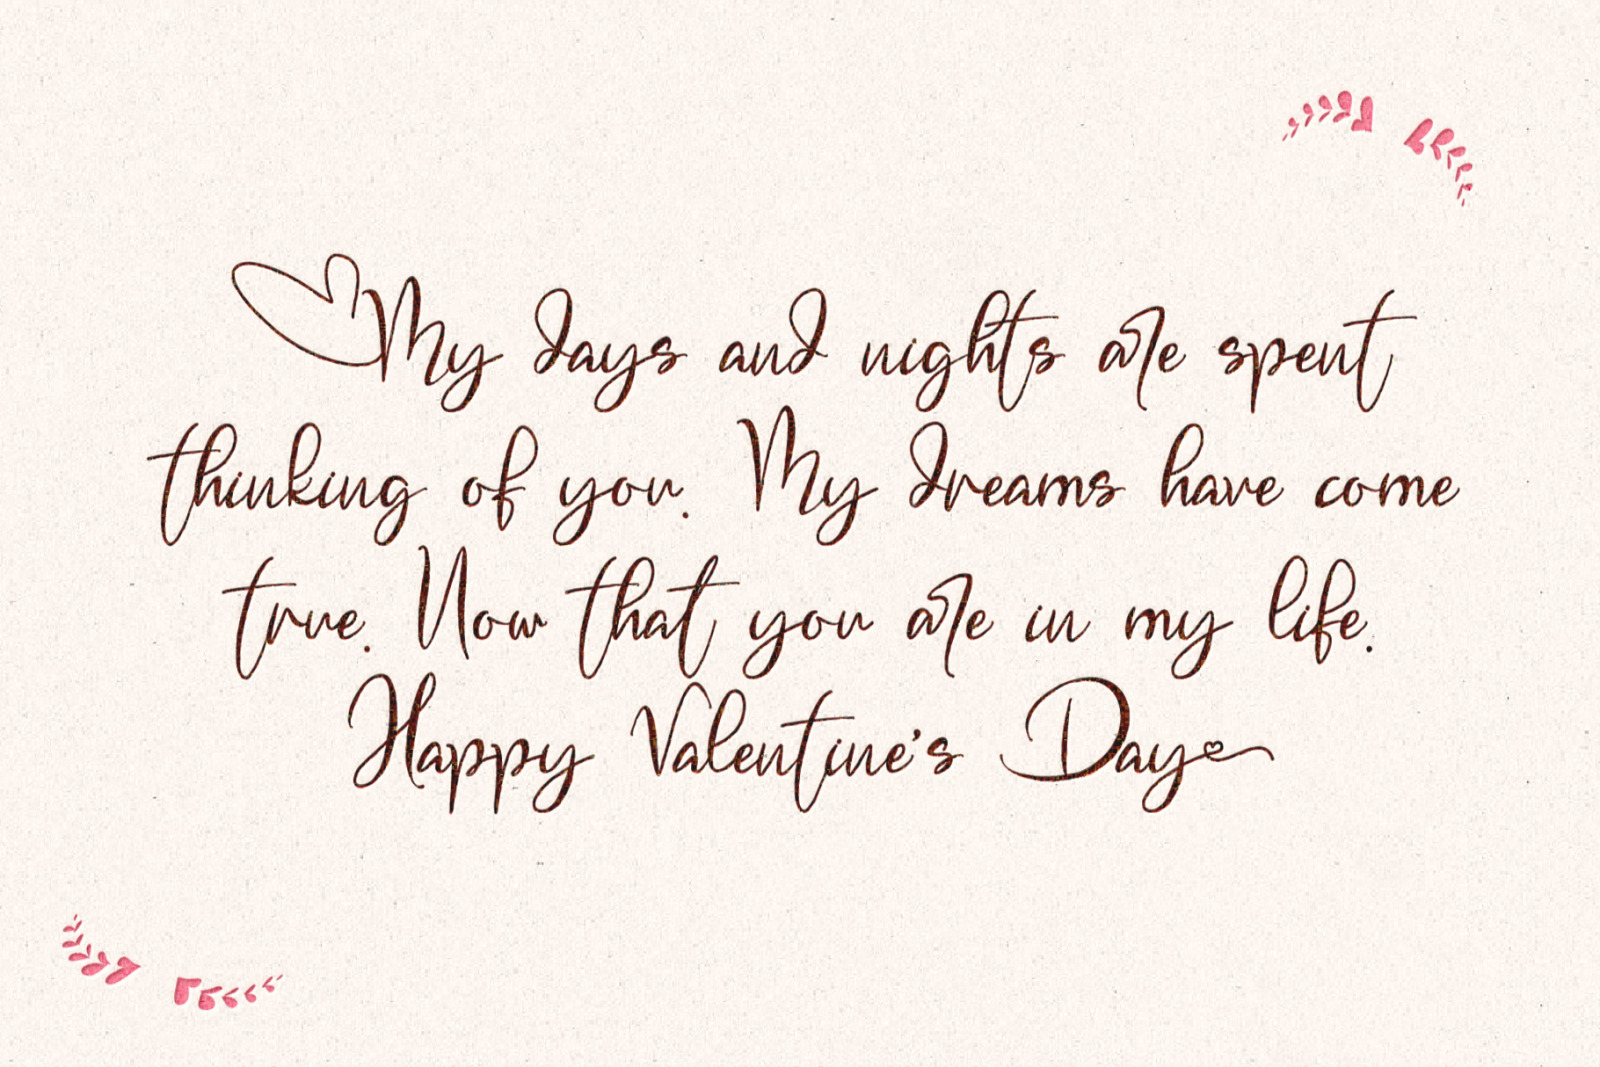 My days and nights are spent
thinking of you. My dreams have come
true. Now that you are in my life.
Happy Valentine's Day